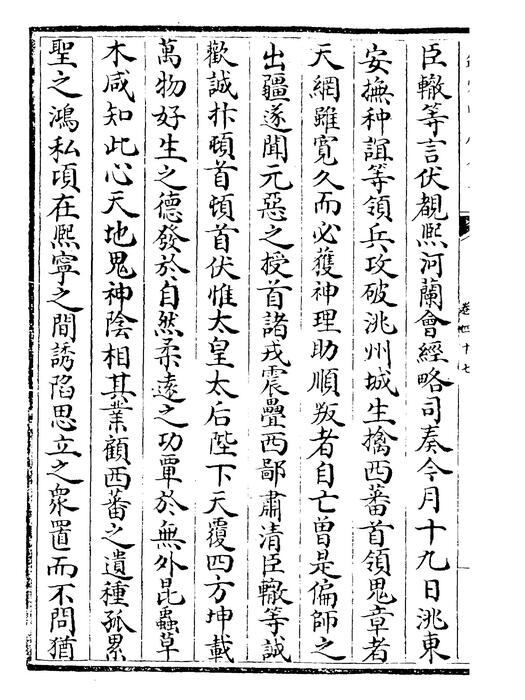 臣轍等言伏覩熙河蘭會經略司奏今月十九日洮東
安撫种誼等領兵攻破洮州城生擒西蕃首領鬼章者
天網雖寛久而必獲神理助順叛者自亡曾是偏師之
出疆遂聞元惡之授首諸戎震疊西鄙肅清臣轍等誠
歡誠抃頓首頓首伏惟太皇太后陛下天覆四方坤載
萬物好生之德發於自然柔逺之功覃於無外昆蟲草
木咸知此心天地鬼神陰相其業顧西蕃之遺種孤累
聖之鴻私項在熙寧之間誘陷思立之衆置而不問猶
卷四十七